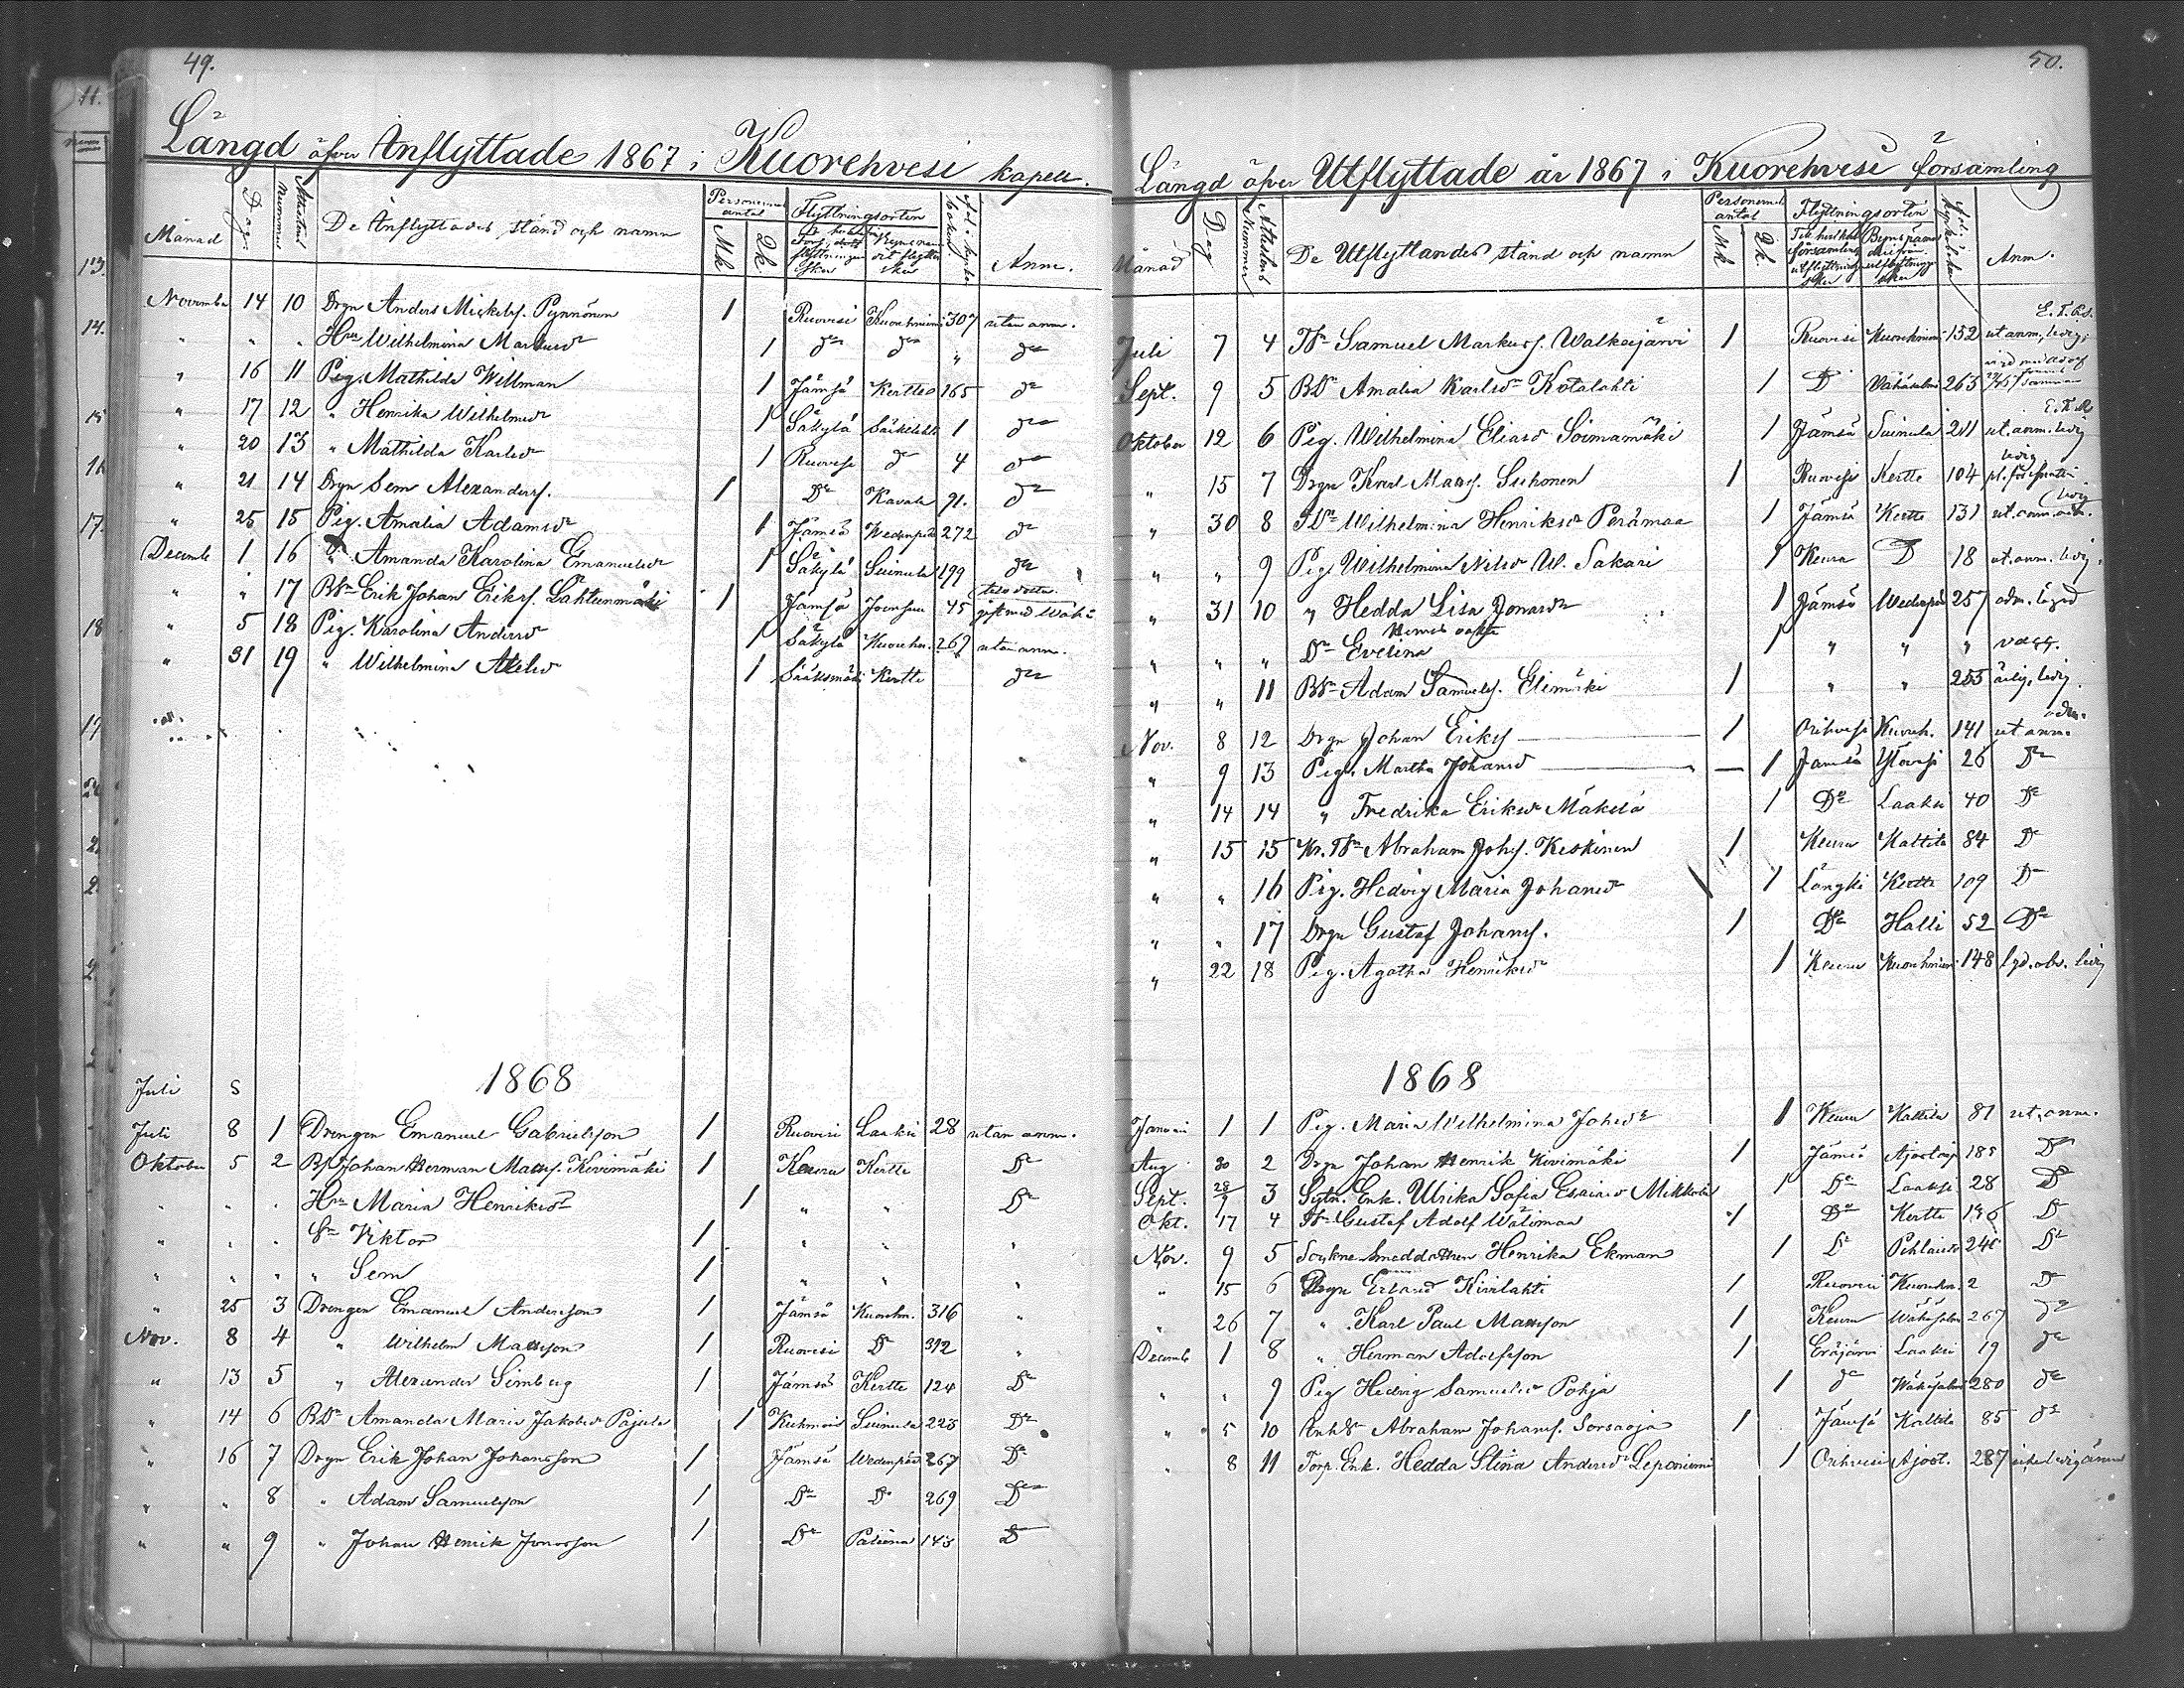 49.
Längd öfver Inflyttade 1867 i Kuorehvesi kapell.
Månad Dag Attestens Nummer De Inflyttades stånd och namn Personernas antal Mk. Qk. Flyttningsorten Anm.
Novemb 14 10 Drgn Anders Mickelss. Pynnönen 1 Ruovesi Kuorehniemi 307 utan anm.
" " " Hru Wilhelmina Markusdr 1 do do " do
" 16 11 Pig. Mathilda Willman 1 Jämsä Kertte 165 do
" 17 12 " Henrika Wilhelmsdr 1 Säkylä 1 do
" 20 13 " Mathilda Karlsdr 1 Ruovesi do 4 do
" 21 14 Drgn Sem Alexanderss. 1 Do Kavala 91. do
" 25 15 Pig. Amalia Adamsdr 1 Jämsä Wedenpää 272 do
Decemb 1 16 " Amanda Karolina Emanuelsdr 1 Säkylä Suinula 199 do
" " 17 BSn Erik Johan Erikss. Lahtenmäki 1 Jämsä Joensuu 45 gift med
" 5 18 Pig. Karolina Andersdr 1 Säkylä Kuorehn. 267 utan anm.
" 31 19 " Wilhelmina Abelsdr 1 Sääksmäki Kertte do
1868
Juli 8
Juli 8 1 Drengen Emanuel Gabrielsson 1 Ruovesi Laaksi 28 utan anm.
Oktober 5 2 Bf Johan Herman Matss. Kivimäki 1 Keuru Kertte Do
" " " Hru Maria Henriksdr 1 " " Do
" " " Sn Viktor 1 " " "
" " " " Sem 1 " " "
" 25 3 Drengen Emanuel Andersson 1 Jämsä Kuorehn. 316 "
Nov. 8 4 " Wilhelm Mattsson 1 Ruovesi Do 392 "
" 13 5 " Alexander Limberg 1 Jämsä Kertte 124 Do
" 14 6 BDr Amanda Maria Jakobsdr Pajula 1 Kuhmois Suinula 223 Do
" 16 7 Drgn Erik Johan Johansson 1 Jämsä Wedenpää 267 Do
" " 8 " Adam Samuelsson 1 Do Do 269 Do
" " 9 " Johan Henrik Jonasson 1 Do Paliena 143 Do
50.
Längd öfver Utflyttade år 1867 i Kuorehvesi församling
Månad Dag Attestens Nummer De Utflyttandes stånd och namn Personernas antal Mk. Qk. Flyttningsorten Anm.
Juli 7 4 TSn Samuel Markuss. Walkeajärvi 1 Ruovesi Kuorehniemi 152 ut anm, ledig,
Sept. 9 5 BDr Amalia Karlsdr Kotalahti 1 Do Wähäsalmi 263
Oktober 12 6 Pig. Wilhelmina Eliasdr Soimamäki 1 Jämsä Suinula 211 ut. anm. ledig
" 15 7 Drgn Karl Matss. Suhonen 1 Ruovesi Kertte 104
" 30 8 TDr Wilhelmina Henriksdr Perämaa 1 Jämsä Kertte 131 ut. anm.
" " 9 Pig. Wilhelmina Nilsdr W. Sakari 1 Keuru Do 18 ut. anm. ledig.
" 31 10 " Hedda Lisa Jonasdr 1 Jämsä Wedenpää 257
" " " Dr Evelina 1 " " " vacc.
" " 11 BSn Adam Samuelss. Elimäki 1 " " 255 ledig
Nov. 8 12 Drgn Johan Erikss 1 Orihvesi Kuoreh. 141 ut anm.
" 9 13 Pig. Martha Johansd 1 Jämsä Ylövesi 26 Do
" 14 14 " Fredrika Eriksdr Mäkelä 1 Do Laaksi 40 Do
" 15 15 Kr. TSn Abraham Johss. Keskinen 1 Keuru Kattila 84 Do
" " 16 Pig. Hedvig Maria Johansdr 1 Längki Kertte 109 Do
" " 17 Drgn Gustaf Johanss. 1 Do Halli 52 Do
" 22 18 Pig. Agatha Henriksdr 1 Keuru Kuorehniemi 148 ledig
1868
Januari 1 1 Pig. Maria Wilhelmina Johsdr 1 Keuru Kattila 81 ut. anm.
Aug 30 2 Drgn Johan Henrik Kivimäki 1 Jämsä Do
Sept. 28/9 3 Sytn. Enk. Ulrika Sofia Esaiasdr 1 Do Laaksi 28 Do
Okt. 17 4 TSn Gustaf Adolf Wälimaa 1 Do Kertte 196 Do
Nov. 9 5 Sockne Smeddottren Henrika Ekman 1 Do Do
" 15 6 Drgn Erland Kivilahti 1 Ruovesi Kuorehn 2 Do
" 26 7 " Karl Paul Mattsson 1 Keuru Wähäsalmi 267 do
Decemb 1 8 " Herman Adolfsson 1 Eräjärvi Laaksi 19 do
" " 9 Pig Hedvig Samuelsdr Pohja 1 do Wähäsalmi 280 do
" 5 10 Abraham Johanss. Sorsaoja 1 Jämsä Kattila 85 do
" 8 11 Torp. Enk. Hedda Stina Andersdr Leponiemi 1 Orihvesi Ajost. 287